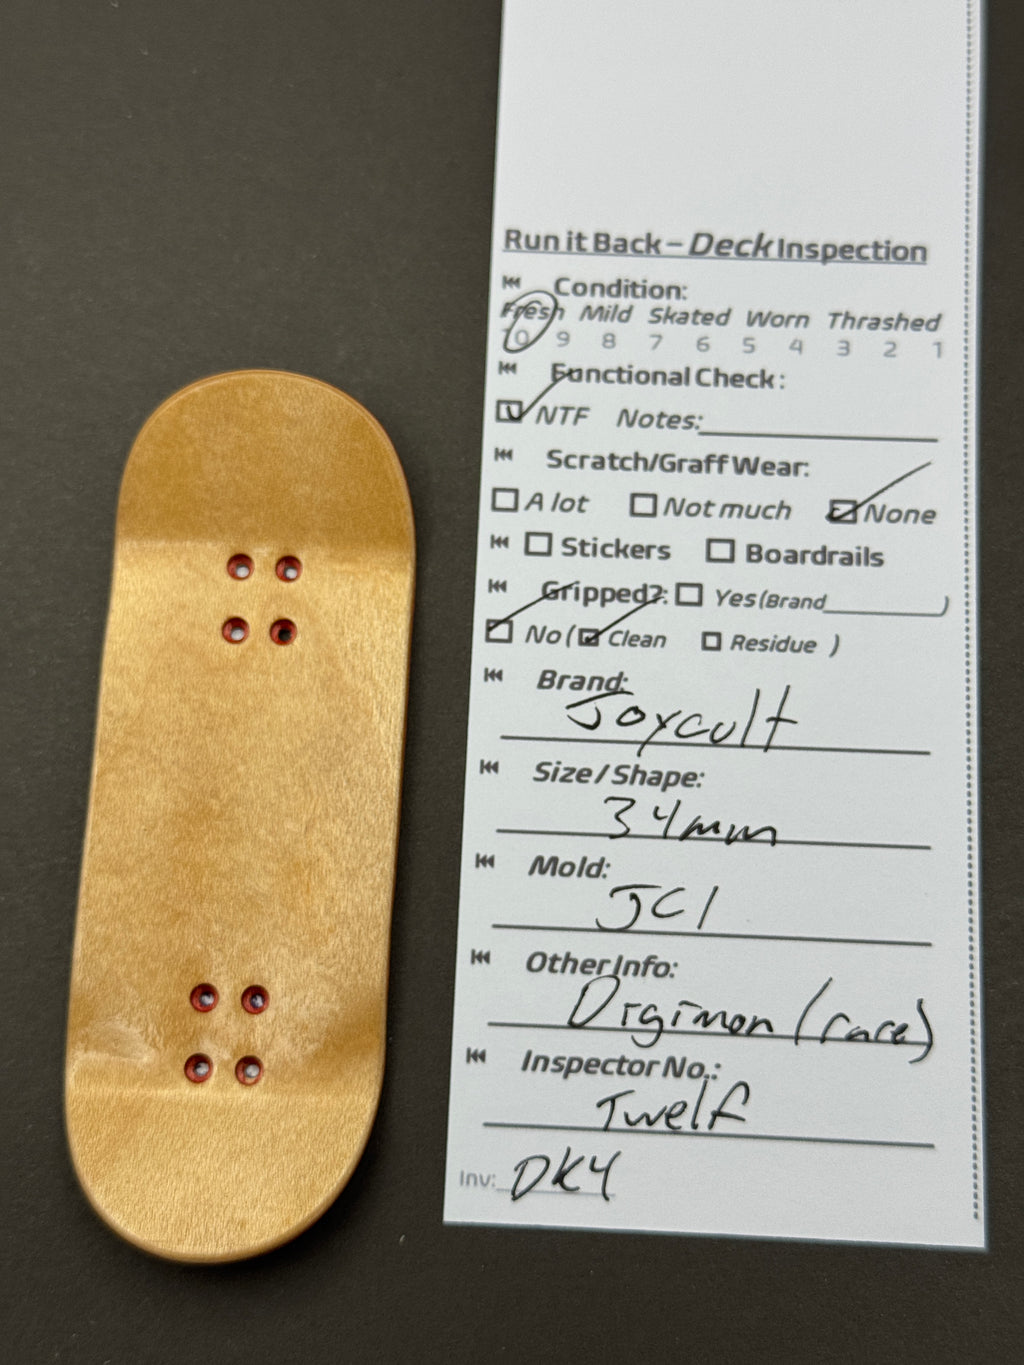 Run it Back - Deck Inspection
Condition:
Fresh Mild Skated Worn Thrashed
10 9 8 7 6 5 4 3 2 1
Functional Check:
NTF Notes:
Scratch/Graff Wear:
A lot Not much None
Stickers Boardrails
Gripped?: Yes (Brand )
No ( Clean Residue )
Brand:
Joycult
Size/Shape:
34mm
Mold:
JC1
Other Info:
Digimon (rare)
Inspector No.:
Twelf
Inv: DK4